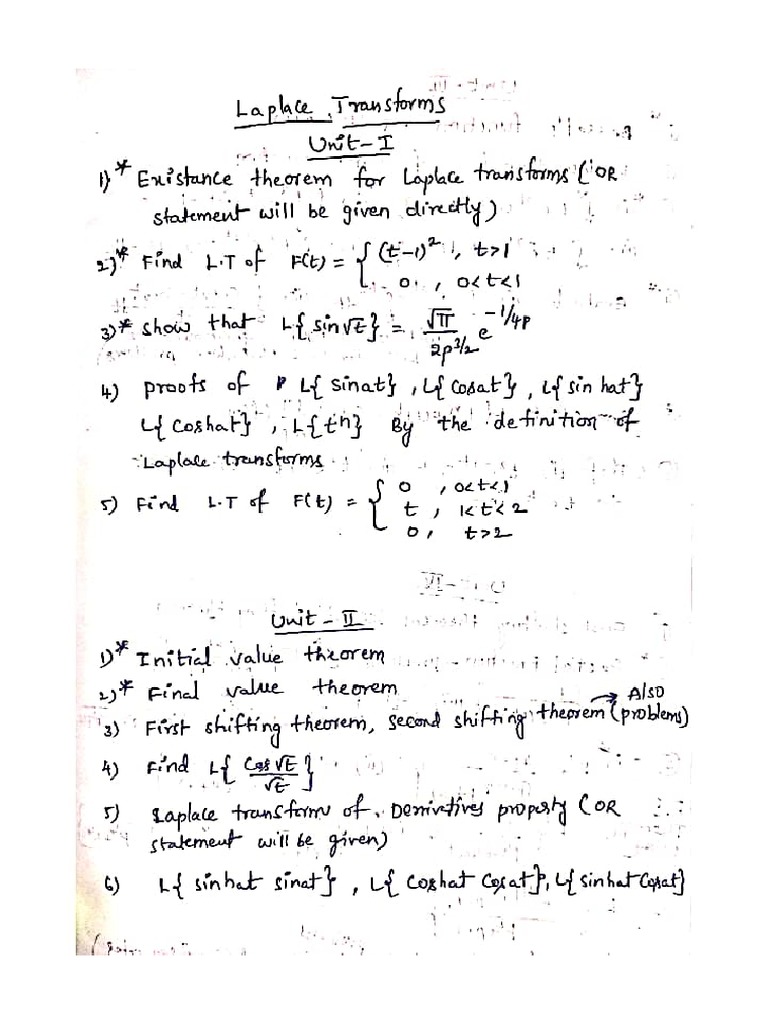 Laplace Transforms
Unit-I
1)* Existance theorem for Laplace transforms (OR
statement will be given directly)
2)* Find L.T of F(t) = { (t-1)², t>1
0, 0<t<1
3)* show that L{sin√t} = √π / 2p^3/2 e^-1/4p
4) proofs of L{sinat}, L{cosat}, L{sinhat}
L{coshat}, L{t^n} By the definition of
Laplace transforms
5) Find L.T of F(t) = { 0, 0<t<1
t, 1<t<2
0, t>2
Unit-II
1)* Initial value theorem
2)* Final value theorem
3) First shifting theorem, second shifting theorem (→ Also problems)
4) Find L{cos√t / √t}
5) Laplace transform of Derivtives property (OR
statement will be given)
6) L{sinhat sinat}, L{coshat cosat}, L{sinhat cosat}